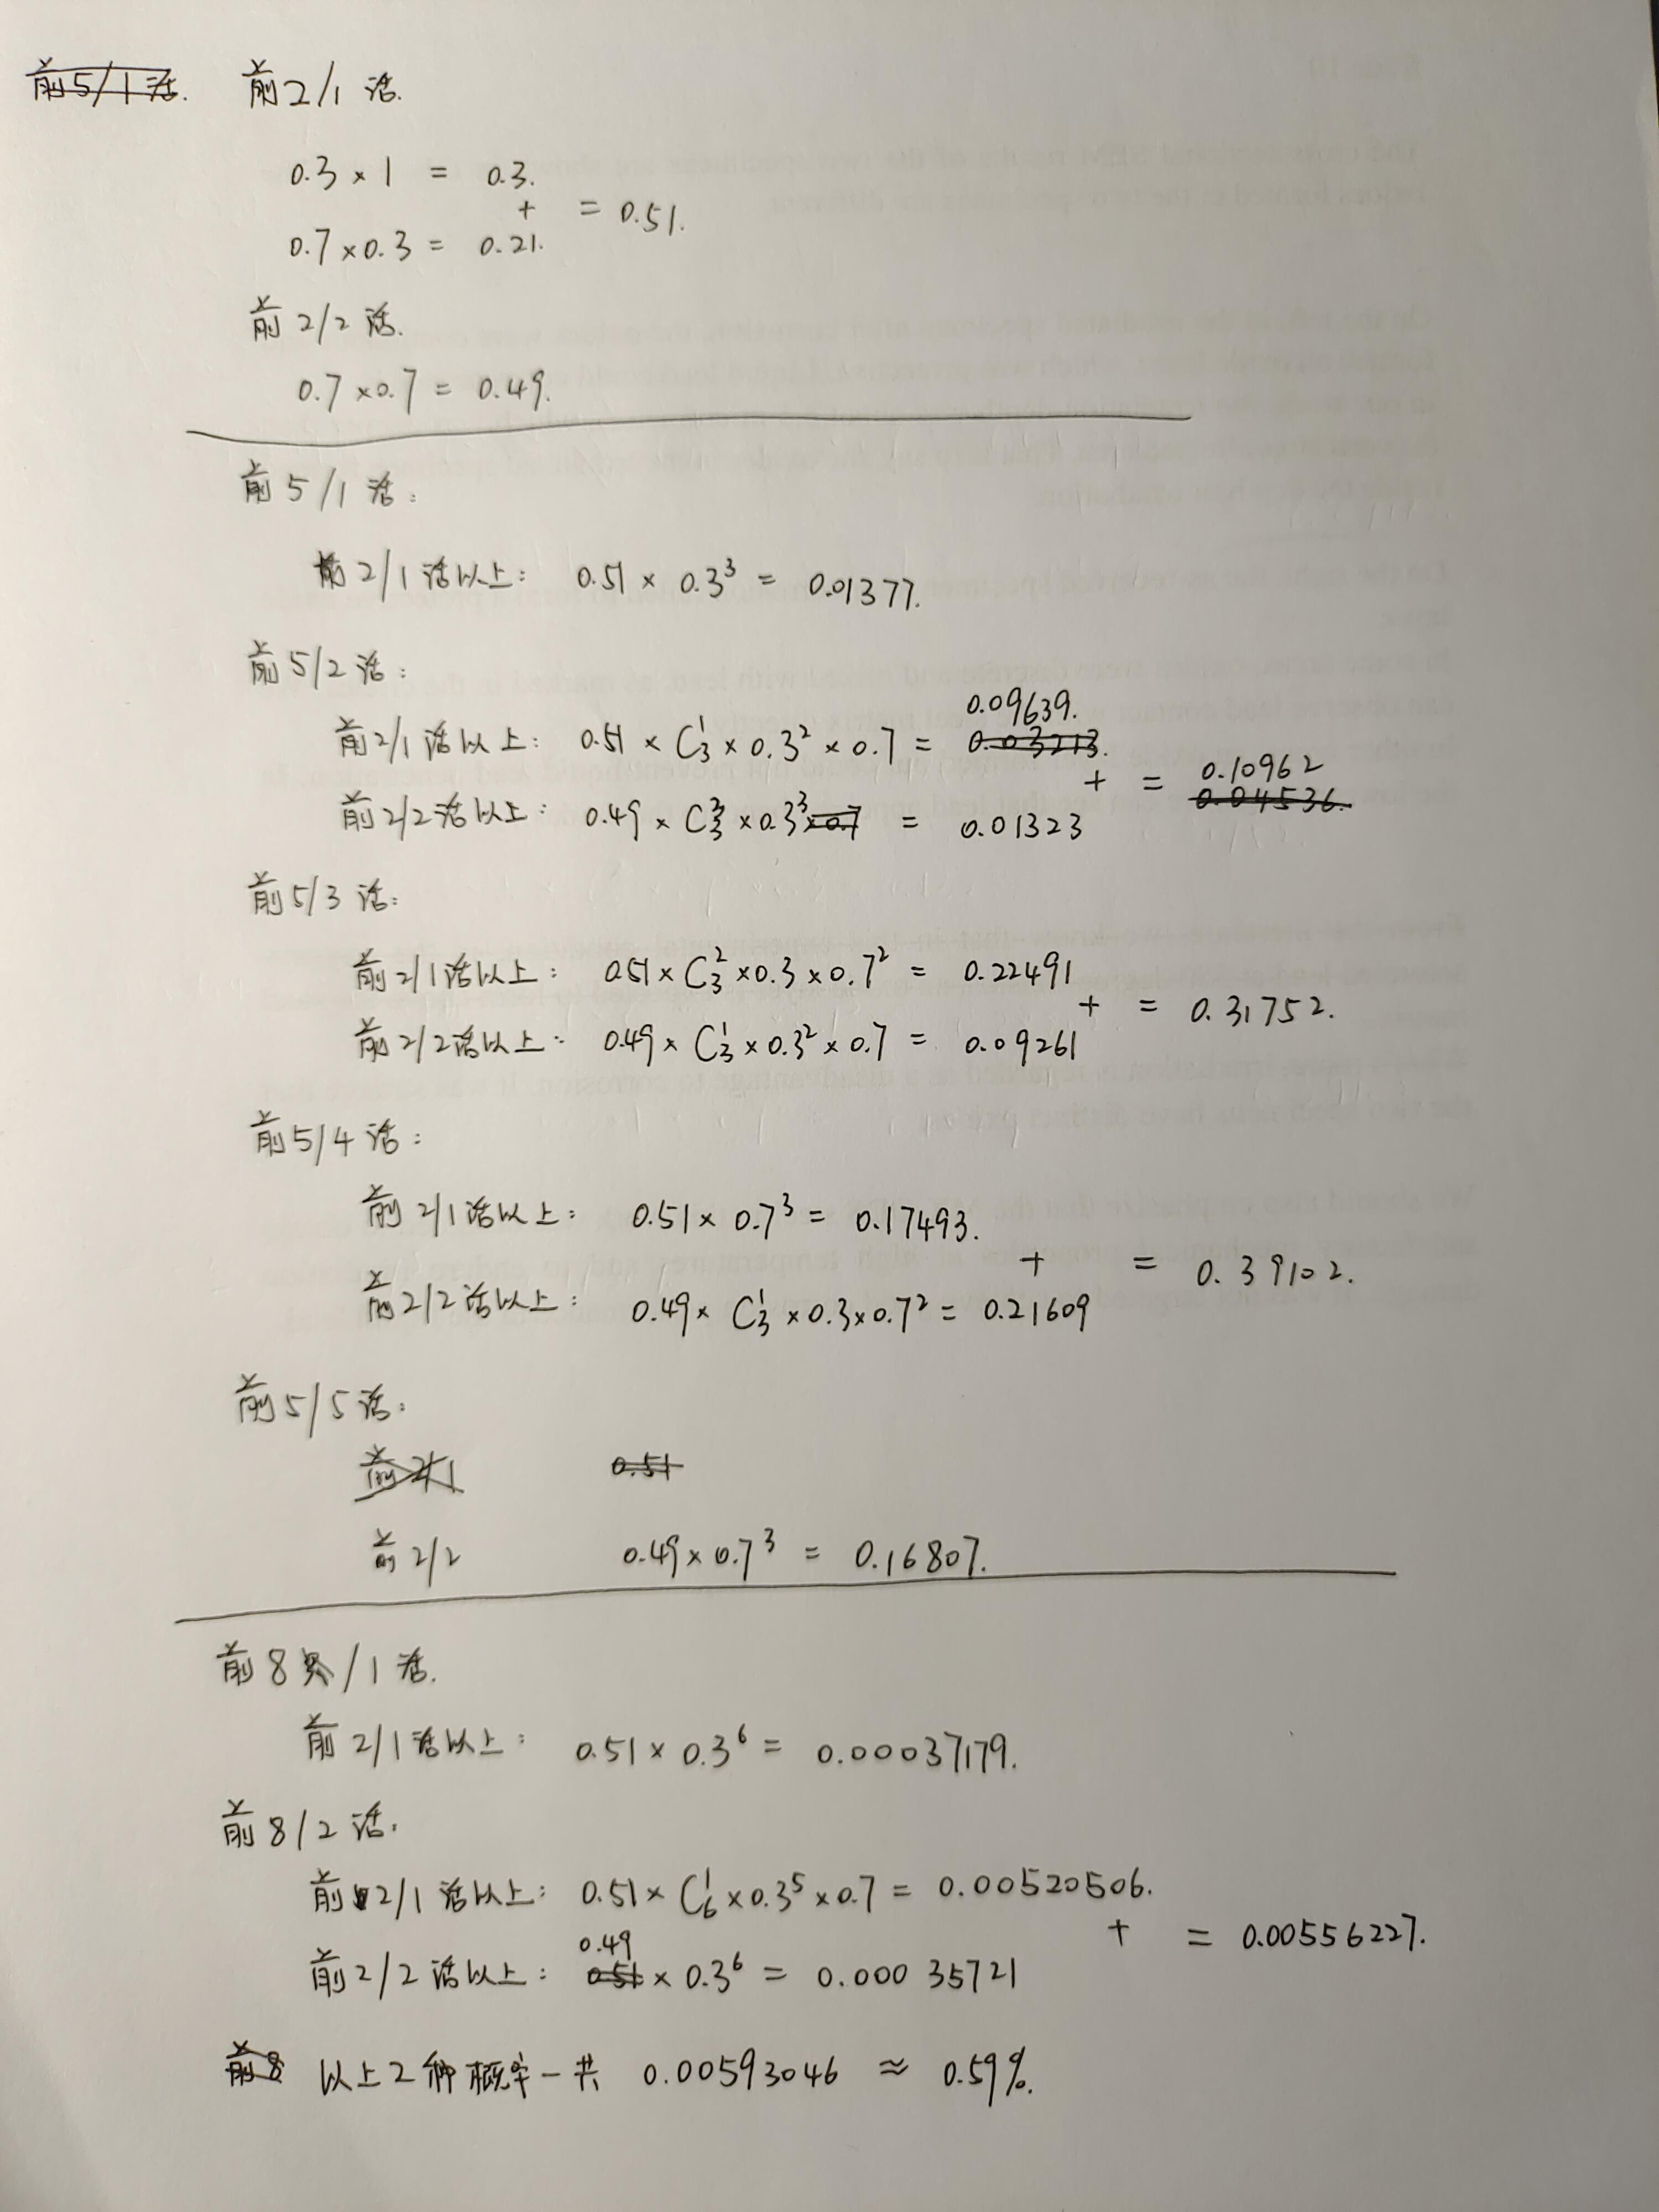 前5/1活. 前2/1活.
0.3 × 1 = 0.3.
+ = 0.51.
0.7 × 0.3 = 0.21.
前2/2活.
0.7 × 0.7 = 0.49.
前5/1活:
前2/1活以上: 0.51 × 0.3³ = 0.01377.
前5/2活:
0.09639.
前2/1活以上: 0.51 × C₃¹ × 0.3² × 0.7 = 0.03213.
+ = 0.10962
0.04536.
前2/2活以上: 0.49 × C₃³ × 0.3³ × 0.7 = 0.01323
前5/3活:
前2/1活以上: 0.51 × C₃² × 0.3 × 0.7² = 0.22491
+ = 0.31752.
前2/2活以上: 0.49 × C₃¹ × 0.3² × 0.7 = 0.09261
前5/4活:
前2/1活以上: 0.51 × 0.7³ = 0.17493.
+ = 0.39102.
前2/2活以上: 0.49 × C₃¹ × 0.3 × 0.7² = 0.21609
前5/5活:
前2/1 0.51
前2/2 0.49 × 0.7³ = 0.16807.
前8/1活.
前2/1活以上: 0.51 × 0.3⁶ = 0.00037179.
前8/2活.
前2/1活以上: 0.51 × C₆¹ × 0.3⁵ × 0.7 = 0.00520506.
+ = 0.00556227.
0.49
前2/2活以上: 0.51 × 0.3⁶ = 0.00035721
前8 以上2种概率一共 0.00593046 ≈ 0.59%.